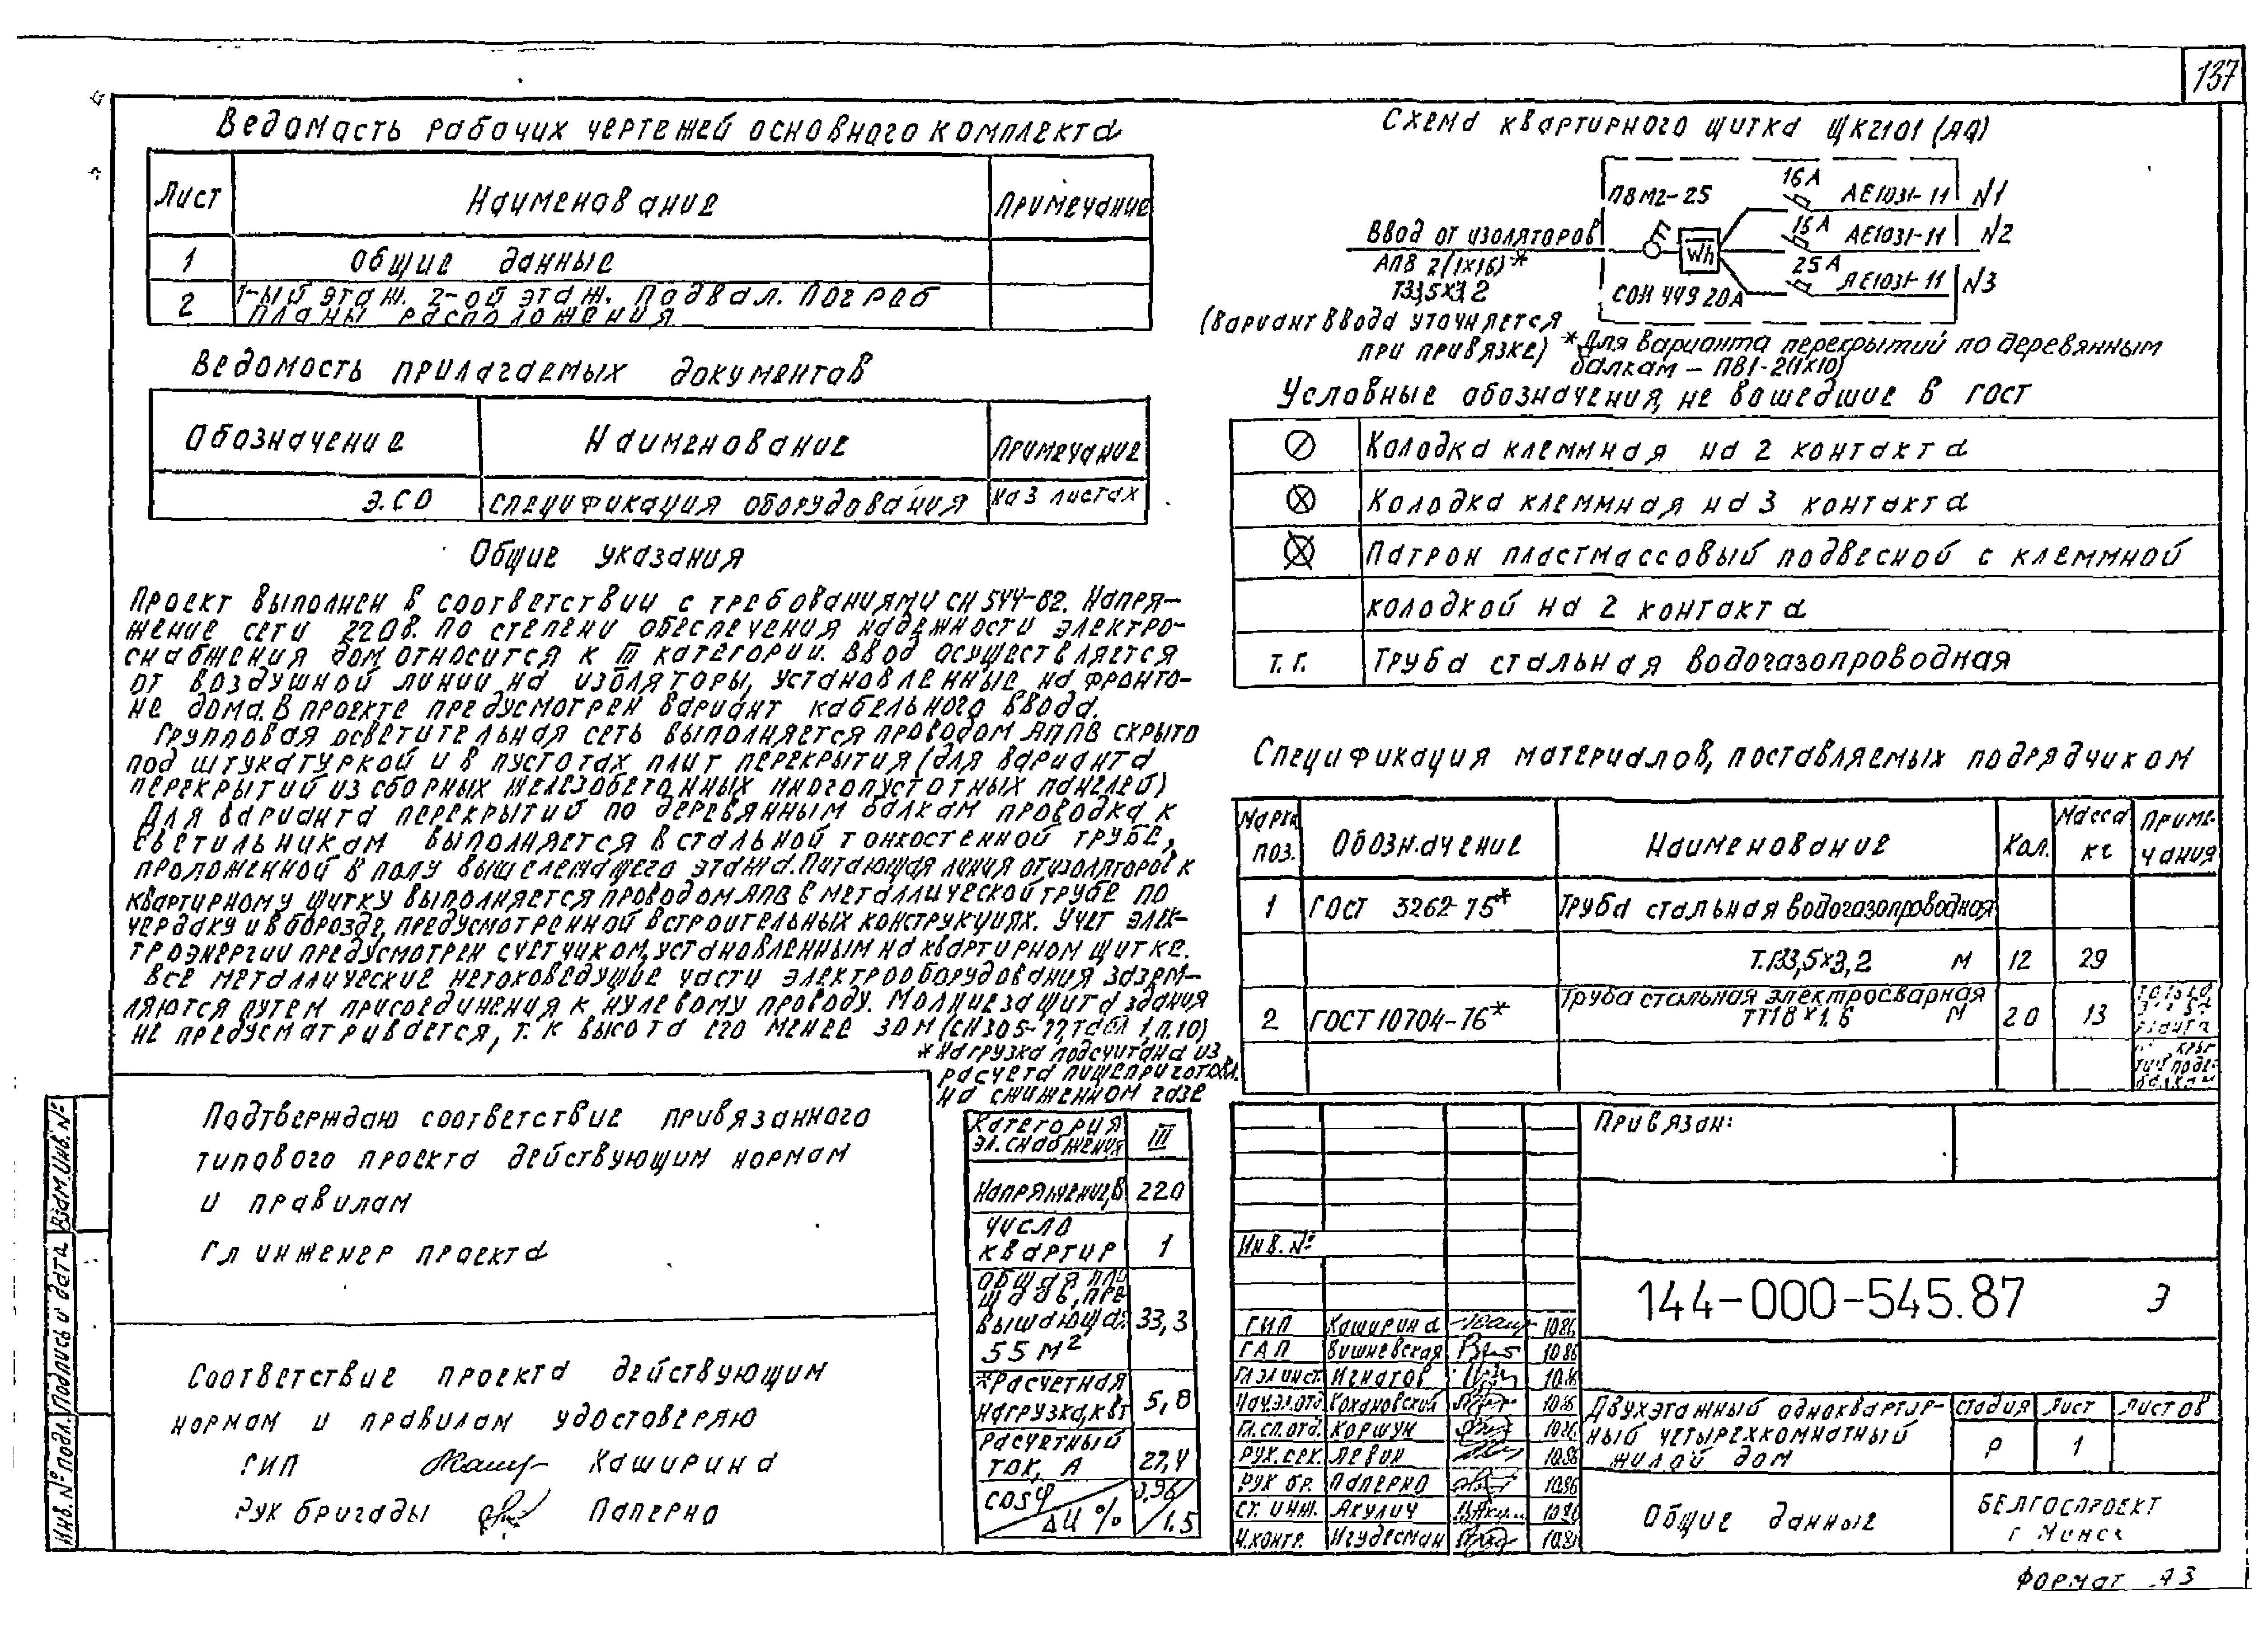 137
Ведомасть рабочих чертежей основного комплекта
Лист Наименование Примечание
1 Общие данные
2 1-ый этаж. 2-ой этаж. Подвал. Погреб
Планы расположения
Ведомость прилагаемых документов
Обозначение Наименование Примечание
Э.СО Спецификация оборудования На 3 листах
Общие указания
Проект выполнен в соответствии с требованиями СН 544-82. Напря-
жение сети 220В. По степени обеспечения надежности электро-
снабжения дом относится к III категории. Ввод осуществляется
от воздушной линии на изоляторы, установленные на фронто-
не дома. В проекте предусмотрен вариант кабельного ввода.
Групповая осветительная сеть выполняется проводом АППВ скрыто
под штукатуркой и в пустотах плит перекрытия (для варианта
перекрытий из сборных железобетонных многопустотных панелей)
Для варианта перекрытий по деревянным балкам проводка к
светильникам выполняется в стальной тонкостенной трубе,
проложенной в полу вышележащего этажа. Питающая линия от изоляторов к
квартирному щитку выполняется проводом АПВ в металлической трубе по
чердаку и в борозде, предусмотренной в строительных конструкциях. Учет элек-
троэнергии предусмотрен счетчиком, установленным на квартирном щитке.
Все металлические нетоковедущие части электрооборудования зазем-
ляются путем присоединения к нулевому проводу. Молниезащита здания
не предусматривается, т. к высота его менее 30м (СН305-77, табл 1, п.10)
* Нагрузка подсчитана из
расчета пищеприготовл.
на сжиженном газе
Подтверждаю соответствие привязанного
типового проекта действующим нормам
и правилам
Гл инженер проекта
Соответствие проекта действующим
нормам и правилам удостоверяю
ГИП Каширина
Рук бригады Паперно
Категория
эл. снабжения III
Напряжение, В 220
Число
квартир 1
Общая пло
щадь, пре
вышающая
55 м² 33,3
*Расчетная
нагрузка, кВт 5,8
Расчетный
ток, А 27,4
cosφ 0,96
ΔU % 1.5
Схема квартирного щитка ЩК2101 (ЯЭ)
ПВМ2-25 16А АЕ1031-11 N1
Ввод от изоляторов Wh 16А АЕ1031-11 N2
АПВ 2(1х16)* 25А АЕ1031-11 N3
Т33,5х3,2 СОИ 449 20А
(Вариант ввода уточняется
при привязке) *Для варианта перекрытий по деревянным
балкам - ПВ1-2(1х10)
Условные обозначения, не вошедшие в ГОСТ
Колодка клеммная на 2 контакта
Колодка клеммная на 3 контакта
Патрон пластмассовый подвесной с клеммной
колодкой на 2 контакта
Т. Г. Труба стальная водогазопроводная
Спецификация материалов, поставляемых подрядчиком
Марка поз. Обозначение Наименование Кол. Масса кг Приме-чания
1 ГОСТ 3262-75* Труба стальная водогазопроводная
Т.Г33,5х3,2 м 12 29
2 ГОСТ 10704-76* Труба стальная электросварная
ТТ18х1.6 м 20 13
Привязан:
Инв. №
144-000-545.87 Э
ГИП Каширина 10.86
ГАП Вишневская 10.86
Гл.эл.инст. Игнатов 10.86
Нач.эл.отд. Кохановский 10.86
Гл.сп.отд. Коршук 10.86
Рук. сек. Левин 10.86
Рук бр. Паперно 10.86
Ст. инж. Якулич 10.86
Н.контр. Игудесман 10.86
Двухэтажный одноквартир-
ный четырехкомнатный
жилой дом
Стадия Лист Листов
Р 1
Общие данные
БЕЛГОСПРОЕКТ
г Минск
Формат А3
Инв. № подл. Подпись и дата Взам. Инв. №